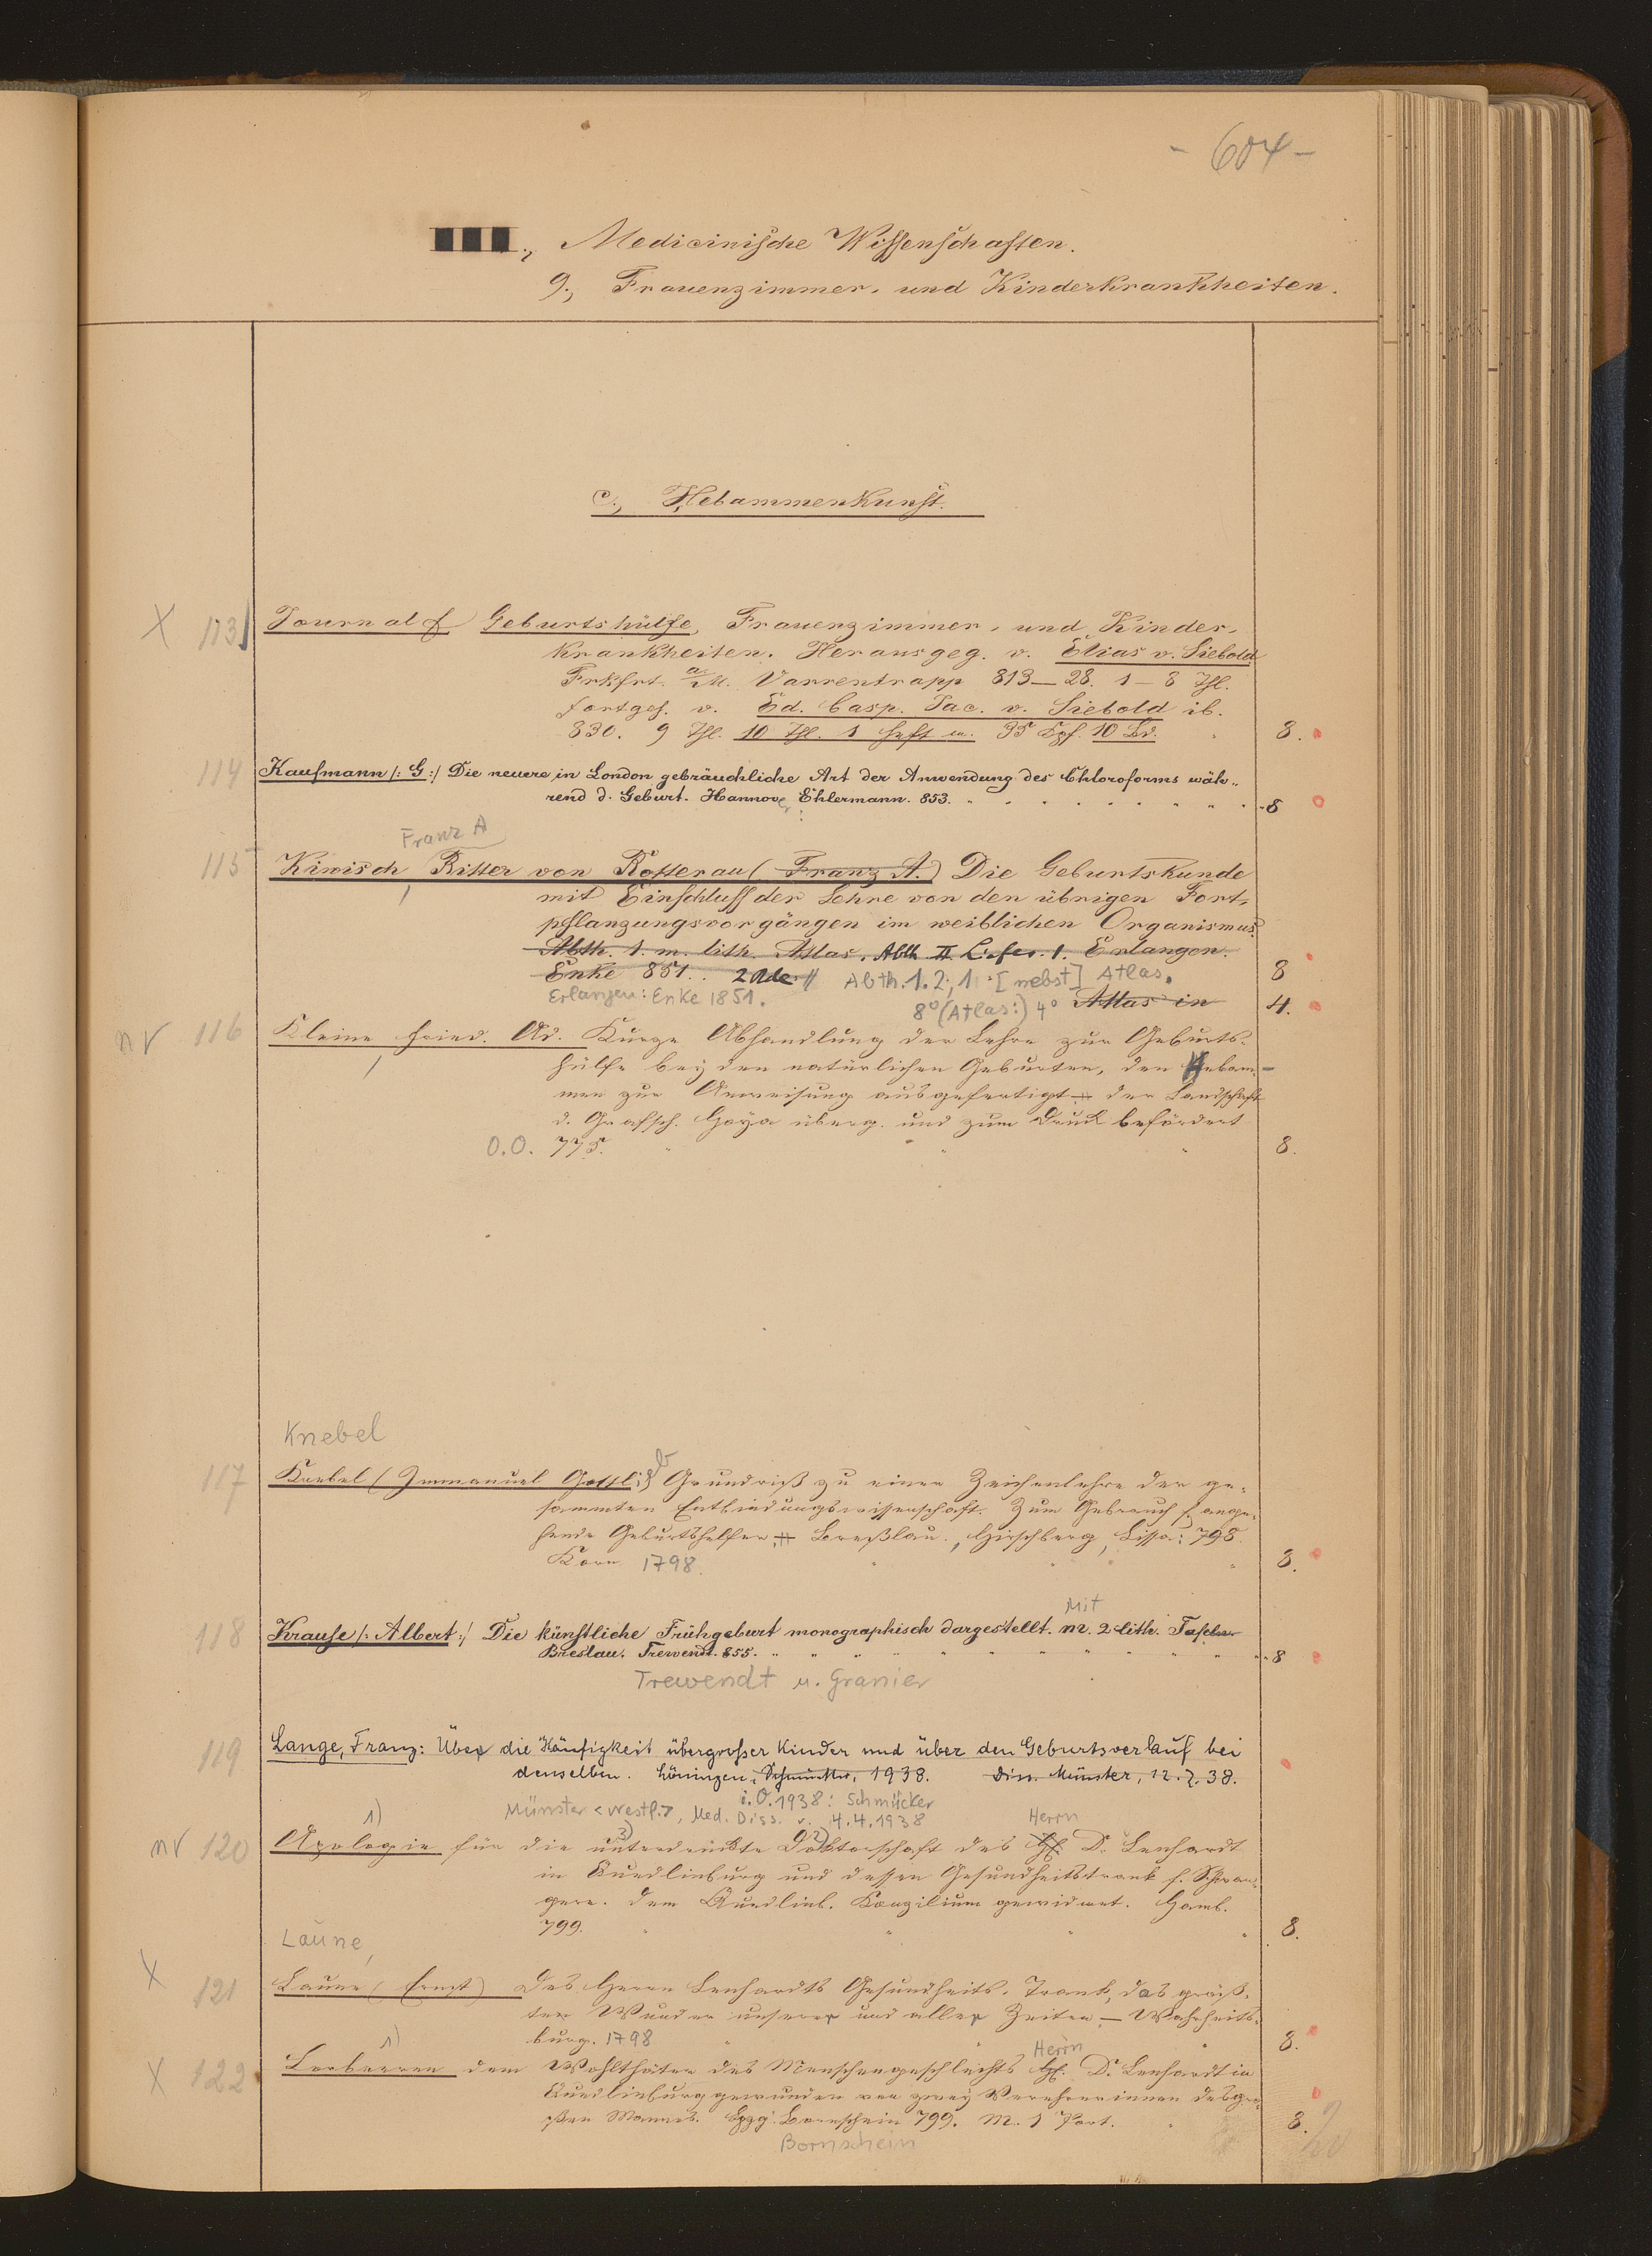 - 604 -
Medicinische Wissenschaften.
9., Frauenzimmer- und Kinderkrankheiten.
c., Hebammenkunst.
X 113 Journal f. Geburtshülfe, Frauenzimmer- und Kinder-
krankheiten. Herausgeg. v. Elias v. Siebold
Frkfrt. a/M. Varrentrapp 813—28. 1—8 Thl.
fortges. v. Ed. Casp. Jac. v. Siebold ib.
830. 9 Thl. 10 Thl. 1 Heft u. 10 Bd. 8.
114 Kaufmann /: G :/ Die neuere in London gebräuchliche Art der Anwendung des Chloroforms wäh-
rend d. Geburt. Hannover, Ehlermann. 853. 8
Franz A
115 Kiwisch Ritter von Rotterau (Franz A.) Die Geburtskunde
mit Einschluss der Lehre von den übrigen Fort-
pflanzungsvorgängen im weiblichen Organismus.
Abth. 1. m. lith. Atlas. Abth II Liefer. 1. Erlangen.
Enke 851. 2 Bde Abth. 1. 2, 1. [nebst] Atlas. 8
Erlangen: Enke 1851. 8° (Atlas:) 4° Atlas in 4.
nv 116 Kleine Fried. Ad. Kurze Abhandlung der Lehre zur Geburts-
hülfe bey den natürlichen Geburten, den Hebam-
men zur Anweisung ausgefertigt der Landschaft
d. Grafsch. Hoya überg. und zum Druck befördert
O.O. 775. 8.
Knebel
117 Knebel (Immanuel Gottlieb) Grundriß zu einer Zeichenlehre der ge-
sammten Entbindungswissenschaft. Zum Gebrauch f. ange-
hende Geburtshelfer. Breßlau, Hirschberg, Lissa: 798.
Korn 1798. 8.
Mit
118 Krause /: Albert :/ Die künstliche Frühgeburt monographisch dargestellt. m. 2 lith. Tafeln
Breslau. Trewendt. 855. 8
Trewendt u. Granier
119 Lange, Franz: Über die Häufigkeit übergroßer Kinder und über den Geburtsverlauf bei
denselben. Löningen, Schmücker, 1938. Diss. Münster, 12.7.38.
i. O. 1938: Schmücker
Münster <Westf.>, Med. Diss. v. 4.4.1938
1) 3) 2) Herrn
nv 120 Apologie für die unterdrückte Doktorschaft des H. Dr. Lenhardt
in Quedlinburg und dessen Gesundheitstrank f. Schwan-
gere. Dem Quedlinb. Konzilium gewidmet. Hamb.
799. 8.
Laune,
X 121 Laune (Ernst) Des Herrn Lenhardts Gesundheits-Trank, das größ-
te Wunder unserer und aller Zeiten — Wahrheits-
burg. 1798 8.
1) Herrn
X 122 Lorbeeren dem Wohlthäter des Menschengeschlechts H. Dr. Lenhardt in
Quedlinburg gewunden von zwey Verehrerinnen des gro-
ßen Mannes. Lpzg. Bornschein 799. M. 1 Port. 8.
Bornschein